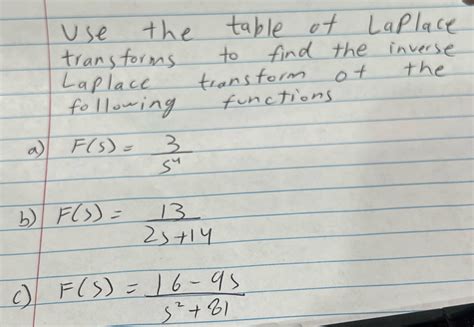 Use the table of Laplace
transforms to find the inverse
Laplace transform of the
following functions
a) F(s) = 3/s⁴
b) F(s) = 13/2s+14
c) F(s) = 16-9s/s²+81